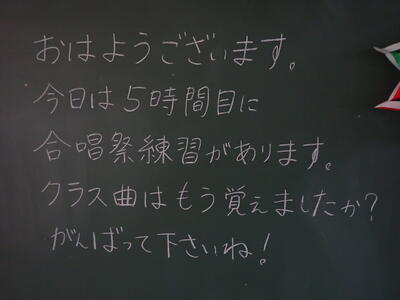 おはようございます。
今日は5時間目に
合唱祭練習があります。
クラス曲はもう覚えましたか?
がんばって下さいね!